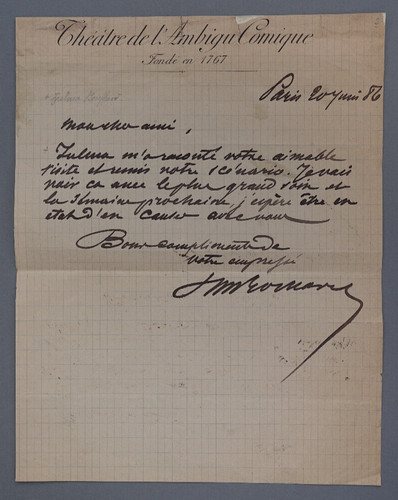 Théâtre de l'Ambigu Comique
Fondé en 1767
Paris 20 juin 86
Mon cher ami,
m'a raconté votre aimable
visite et remis notre scénario. Je vais
voir ça avec le plus grand soin et
la semaine prochaine, j'espère être en
état d'en causer avec vous
Bons compliments de
votre empressé